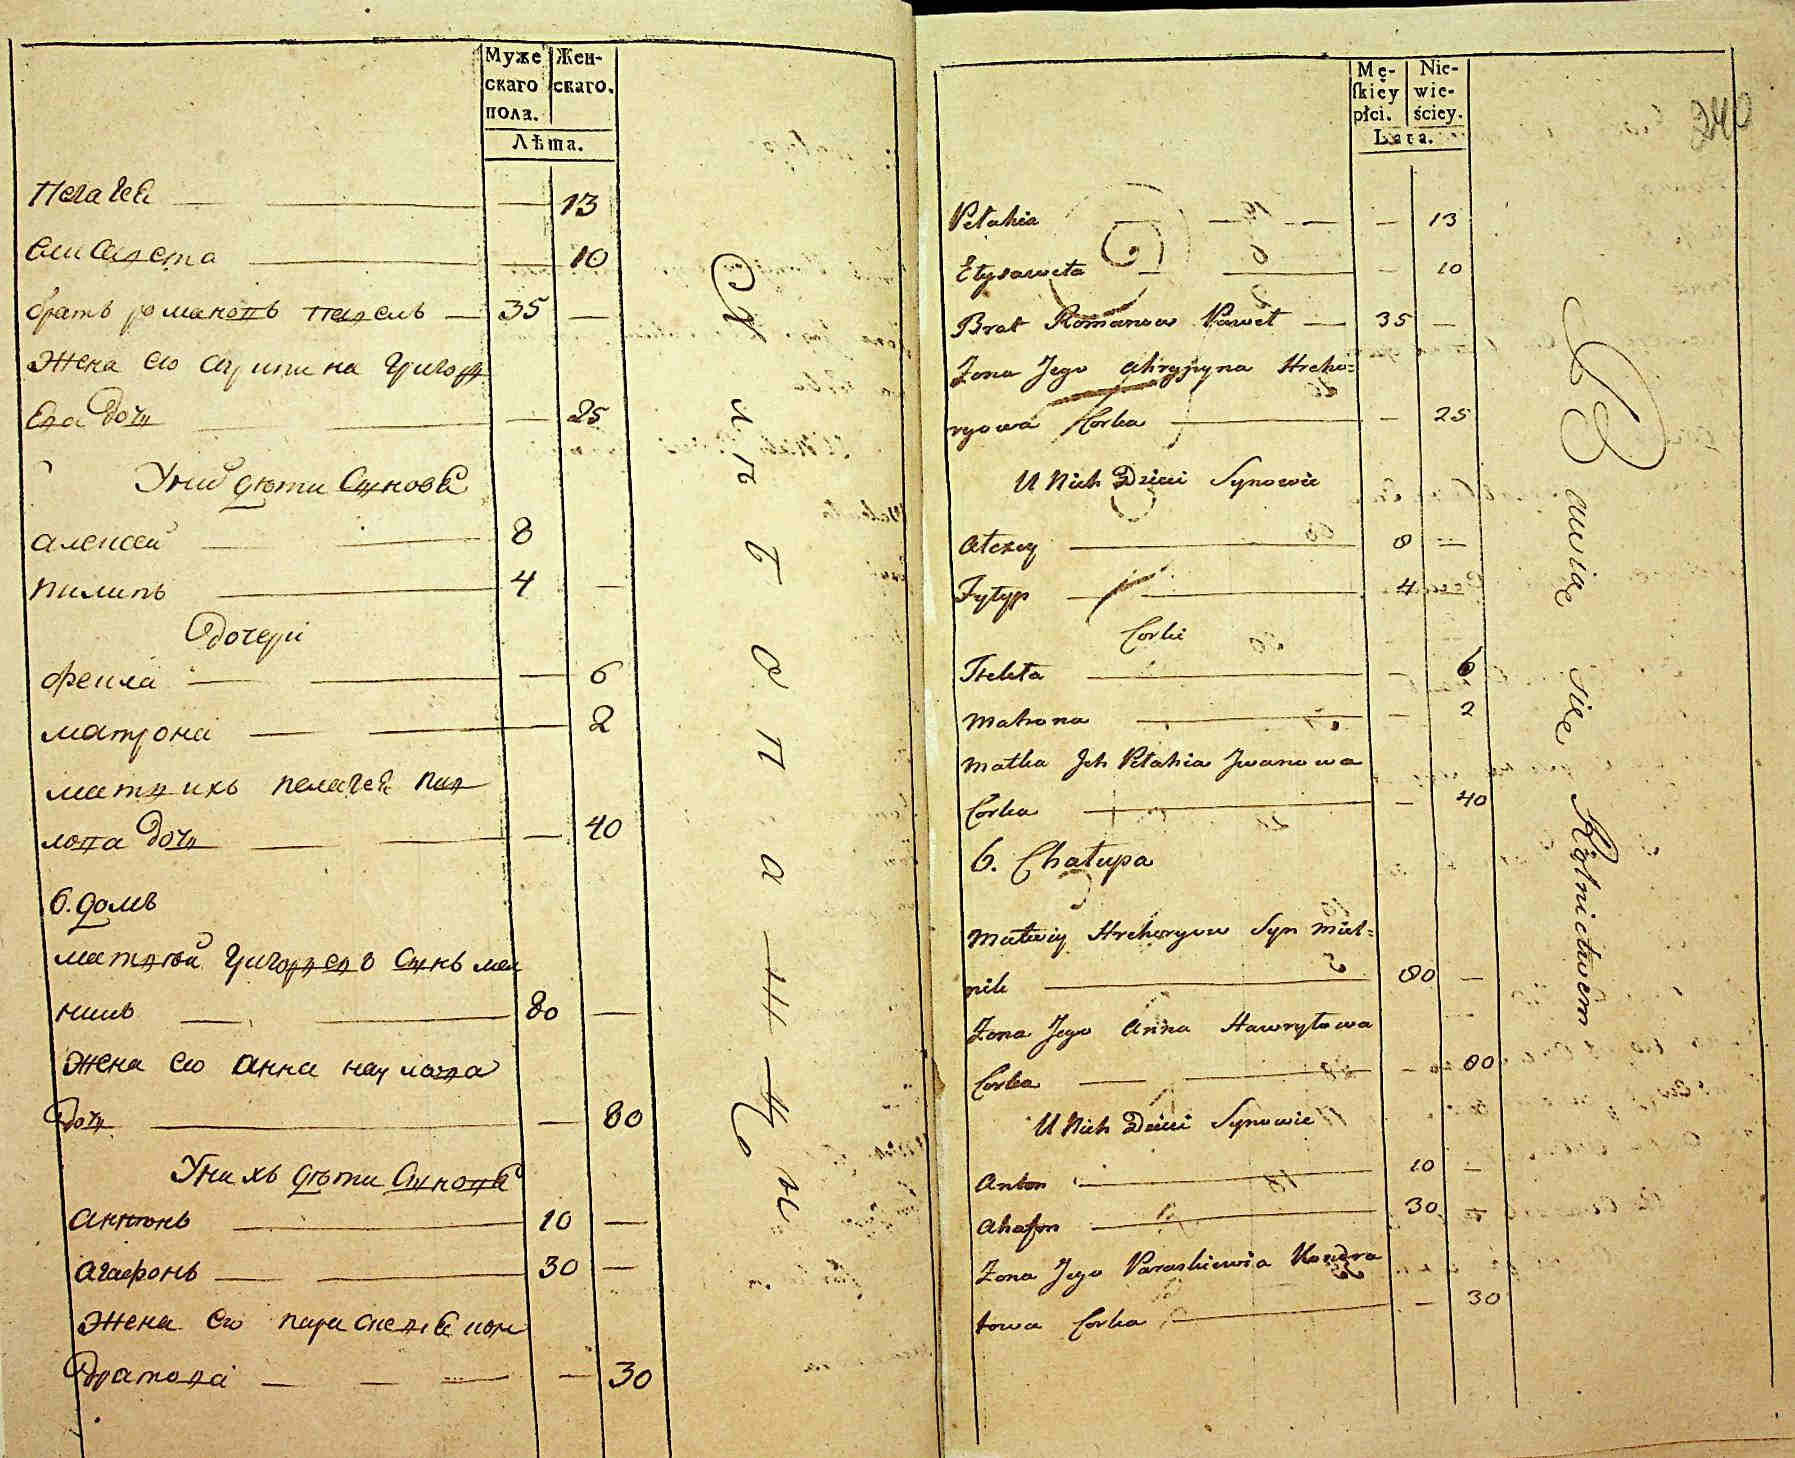 Муже
скаго
пола.
Жен-
скаго.
Лѣта.
Пелагея — — — 13
елисавета — — 10
братъ романовъ павелъ — 35 —
жена его агрипина григорь
ева дочь — — — 25
У ний дѣти Сыновя
алексей — — 8
пилипъ — 4 —
дочери
фекла — — — 6
матрона — — — 2
мать ихъ пелагея
дочь — — — 40
6. домъ
матвей григорьевъ сынъ мел
никъ — — 80 —
жена его анна
дочь — — 80
У нихъ дѣти Сыновя
антонъ — 10 —
агафонъ — — 30 —
жена его параскевия кон
дратова — — — — 30
Mę-
skiey
płci.
Nie-
wie-
ściey.
Lata.
240
Pełahia — — — — 13
Elyzaweta — — — 10
Brat Romanow Paweł — 35 —
Zona Jego Ahrypyna Hreho=
ryowa Corka — — 25
U Nich Dzieci Synowie
Alexey — 8 —
Fylyp — — 4
Corki
Thekla — — 6
Matrona — — 2
Matka Jch Pełahia Jwanowa
Corka — — 40
6. Chałupa
Matwiy Hrehoryow Syn Miel=
nik — 80 —
Zona Jego Anna Hawryłowa
Corka — — — 80
U Nich Dzieci Synowie
Anton — 10 —
Ahafon — 30 —
Zona Jego Paraskiewia Kondra
towa Corka — — 30
Bawią się Rolnictwem